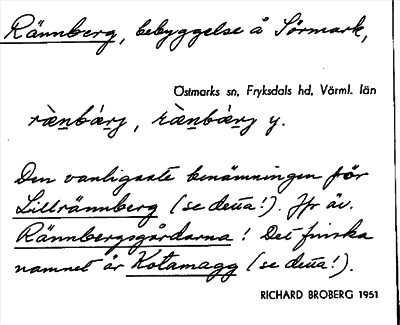 Rännberg, bebyggelse å Sörmark,
Östmarks sn, Fryksdals hd, Värml. län
ràn̲bár̲j, ràn̲bàr̲j y.
Den vanligaste benämningen för
Lillrännberg (se detta!). Jfr äv.
Rännbergsgårdarna! Det finska
namnet är Kotamagg (se detta!).
RICHARD BROBERG 1951